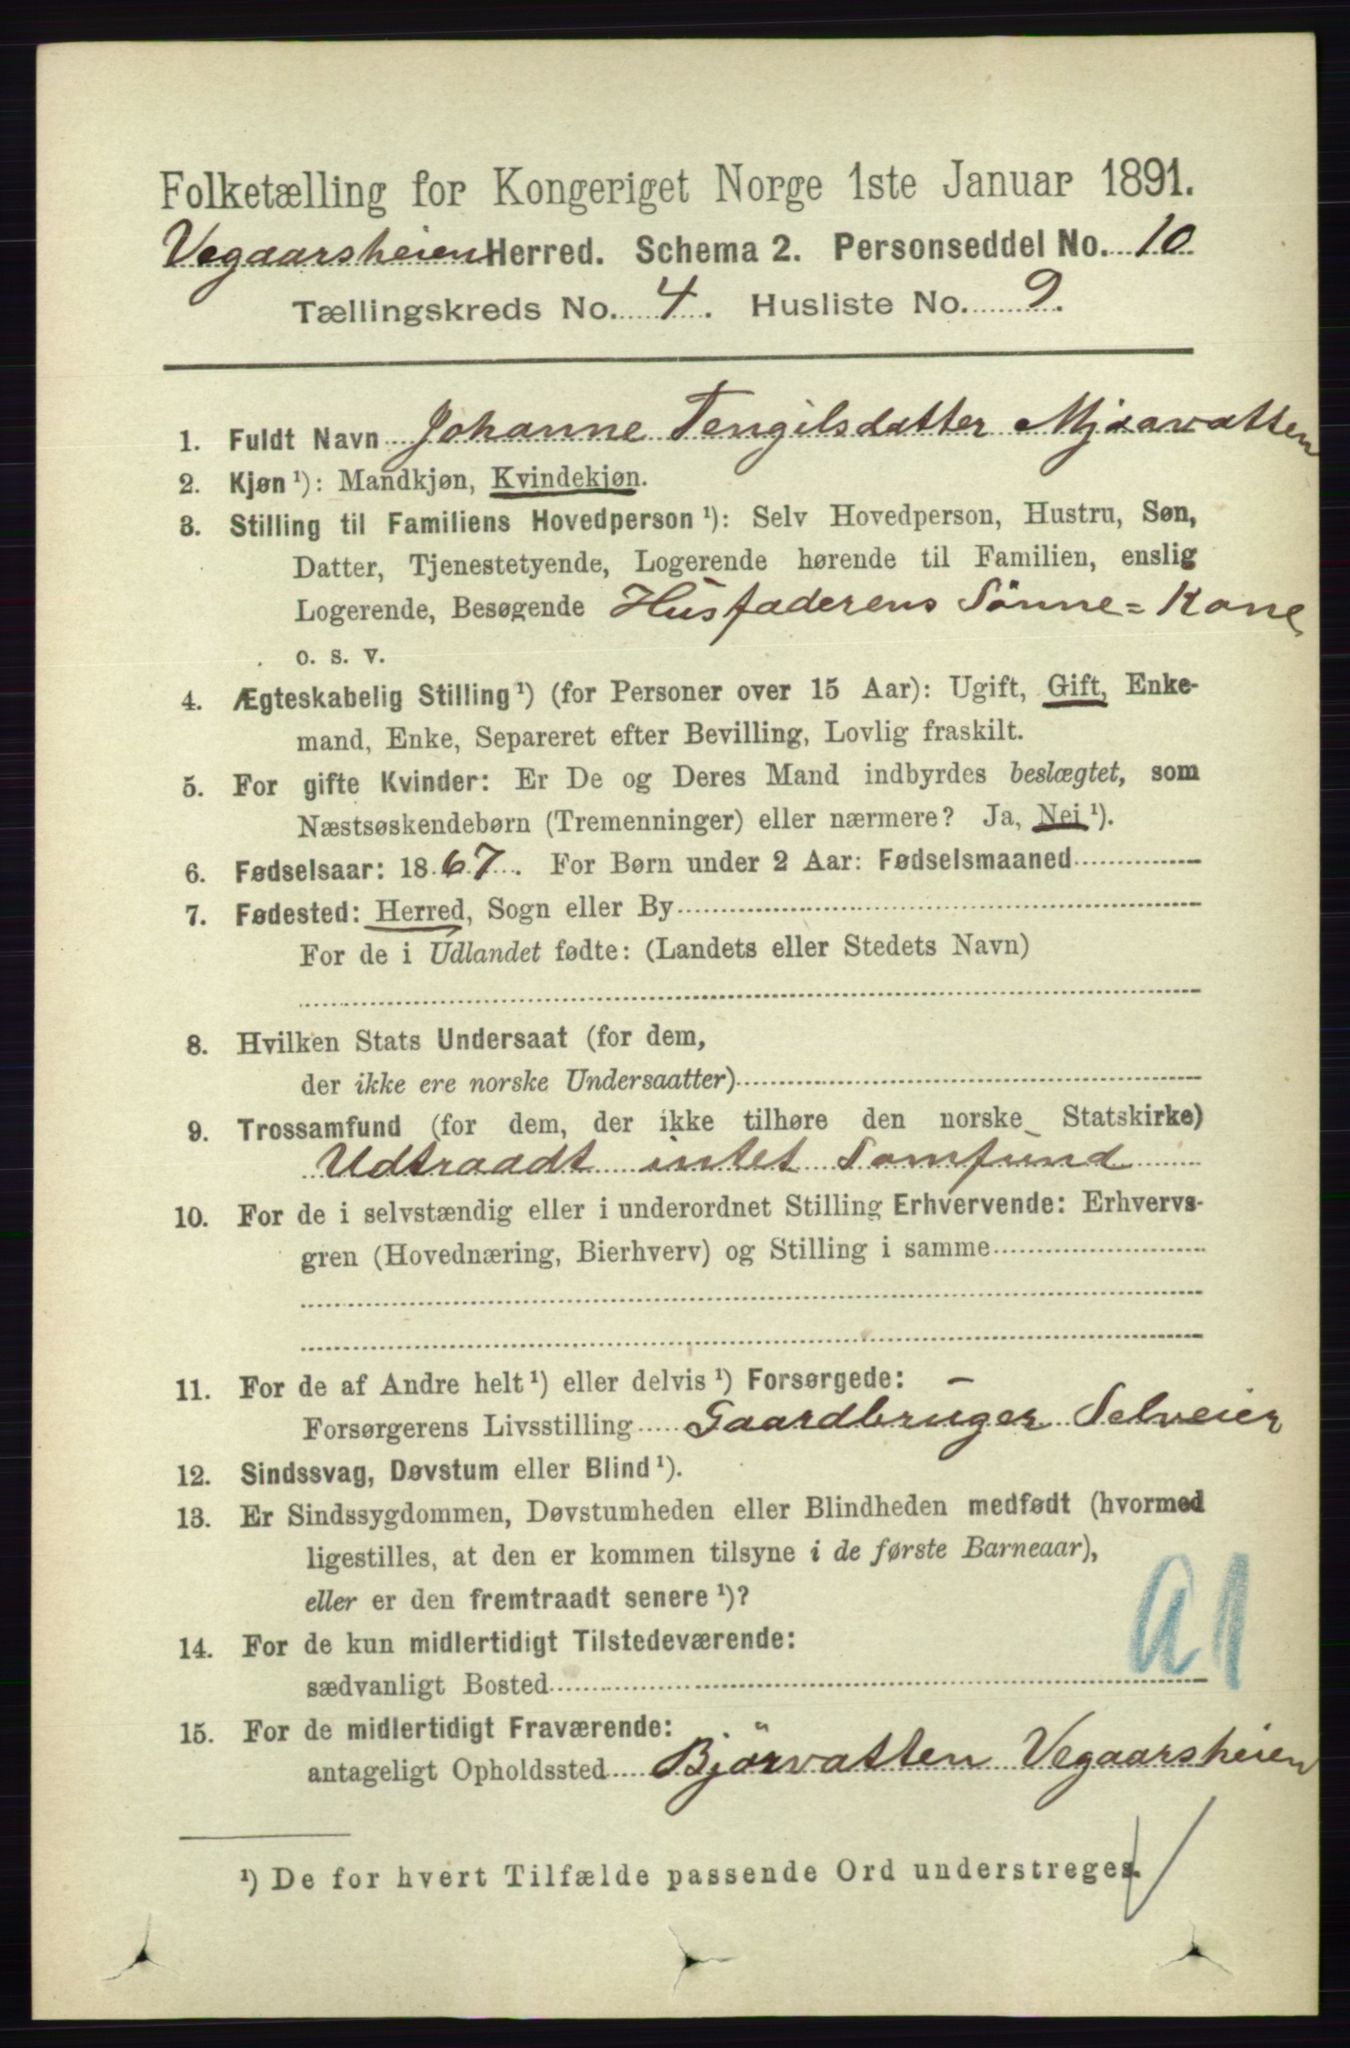 Folketælling for Kongeriget Norge 1ste Januar 1891.
Vegaarsheien Herred. Schema 2. Personseddel No. 10
Tællingskreds No. 4. Husliste No. 9.
1. Fuldt Navn Johanne Tengilsdatter Mjaavatten
2. Kjøn ¹): Mandkjøn, Kvindekjøn.
3. Stilling til Familiens Hovedperson ¹): Selv Hovedperson, Hustru, Søn,
Datter, Tjenestetyende, Logerende hørende til Familien, enslig
Logerende, Besøgende Husfaderens Sönne=Kone
o. s. v.
4. Ægteskabelig Stilling ¹) (for Personer over 15 Aar): Ugift, Gift, Enke-
mand, Enke, Separeret efter Bevilling, Lovlig fraskilt.
5. For gifte Kvinder: Er De og Deres Mand indbyrdes beslægtet, som
Næstsøskendebørn (Tremenninger) eller nærmere? Ja, Nei ¹).
6. Fødselsaar: 1867. For Børn under 2 Aar: Fødselsmaaned
7. Fødested: Herred, Sogn eller By
For de i Udlandet fødte: (Landets eller Stedets Navn)
8. Hvilken Stats Undersaat (for dem,
der ikke ere norske Undersaatter)
9. Trossamfund (for dem, der ikke tilhøre den norske Statskirke)
Udtraadt intet Samfund
10. For de i selvstændig eller i underordnet Stilling Erhvervende: Erhvervs-
gren (Hovednæring, Bierhverv) og Stilling i samme
11. For de af Andre helt ¹) eller delvis ¹) Forsørgede:
Forsørgerens Livsstilling Gaardbruger Selveier
12. Sindssvag, Døvstum eller Blind ¹).
13. Er Sindssygdommen, Døvstumheden eller Blindheden medfødt (hvormed
ligestilles, at den er kommen tilsyne i de første Barneaar),
eller er den fremtraadt senere ¹)?
14. For de kun midlertidigt Tilstedeværende:
sædvanligt Bosted
a1
15. For de midlertidigt Fraværende:
antageligt Opholdssted Bjärvatten Vegaarsheien
¹) De for hvert Tilfælde passende Ord understreges.